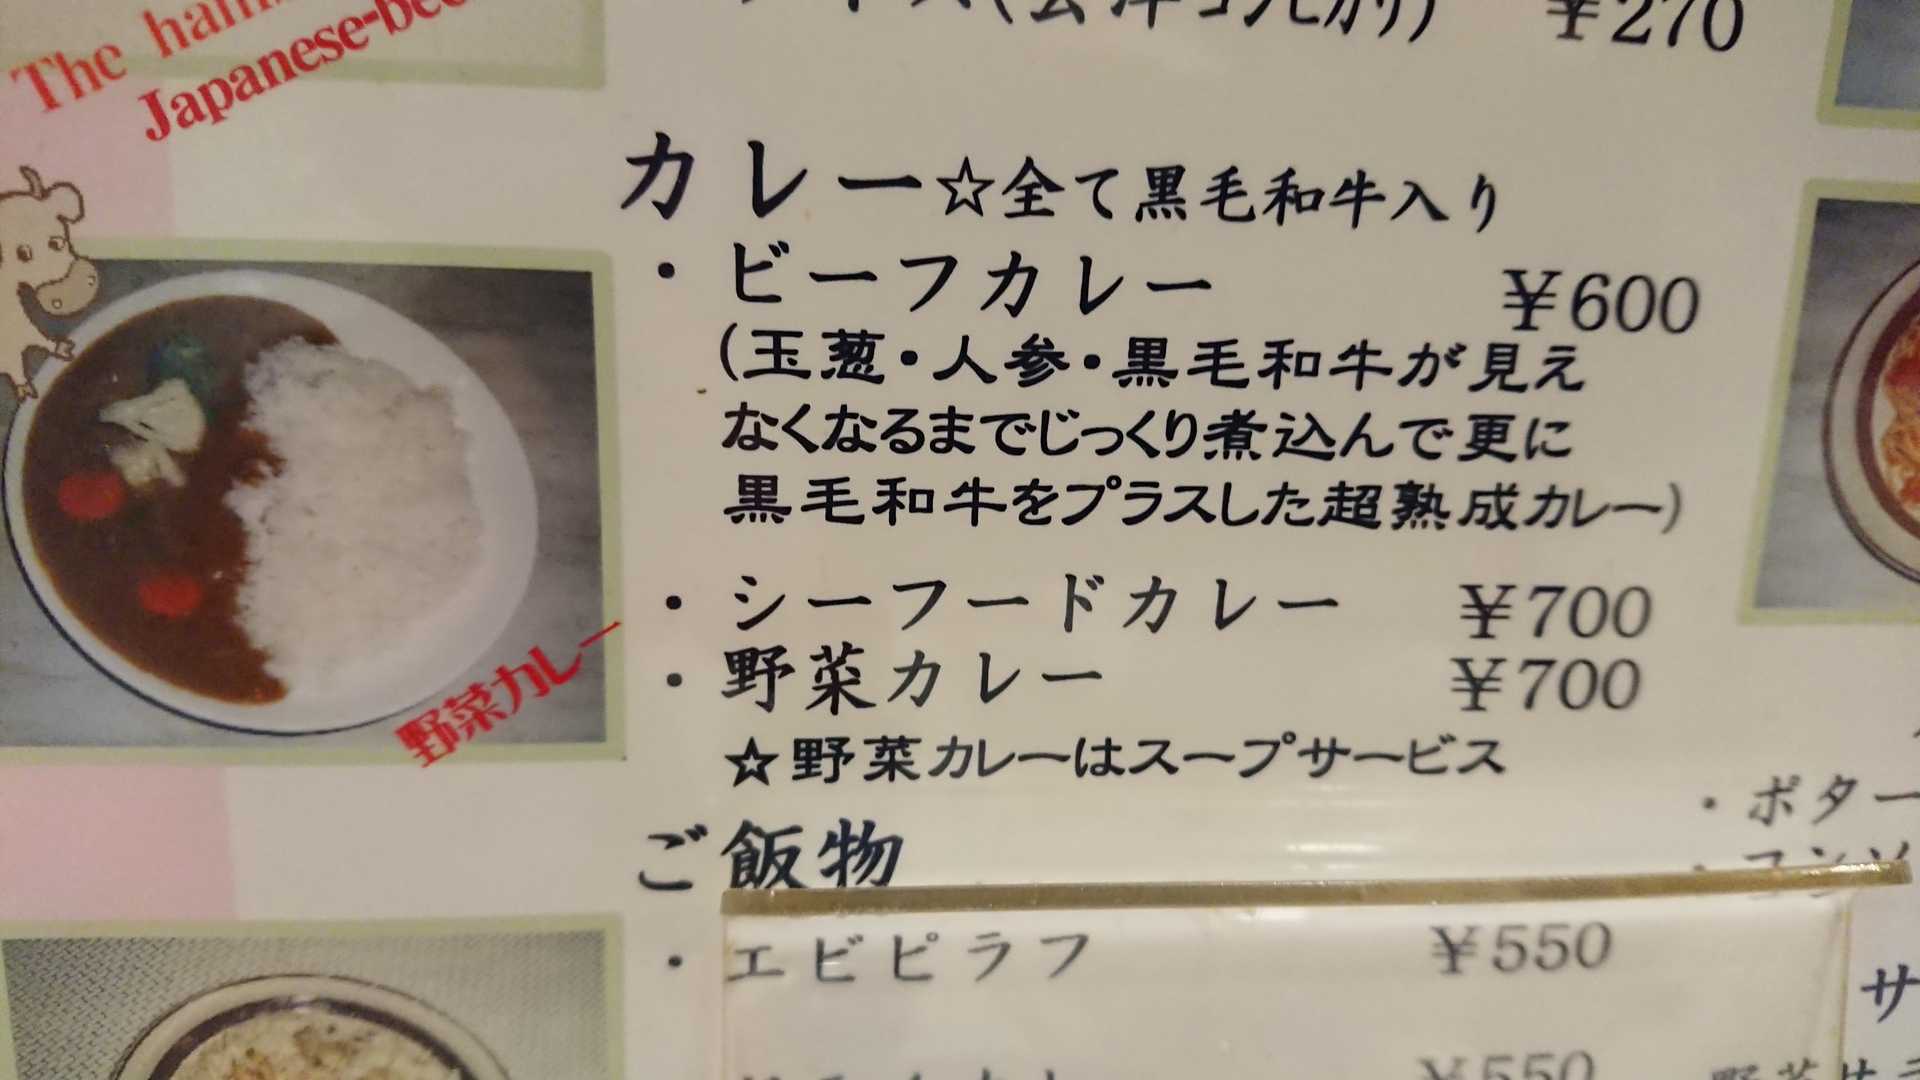 The
Japanese-bee
(会津コシヒカリ) ¥270
カレー☆全て黒毛和牛入り
・ビーフカレー ¥600
(玉葱・人参・黒毛和牛が見え
なくなるまでじっくり煮込んで更に
黒毛和牛をプラスした超熟成カレー)
・シーフードカレー ¥700
・野菜カレー ¥700
☆野菜カレーはスープサービス
野菜カレー
ご飯物
・エビピラフ ¥550
¥550
・ポター
サ